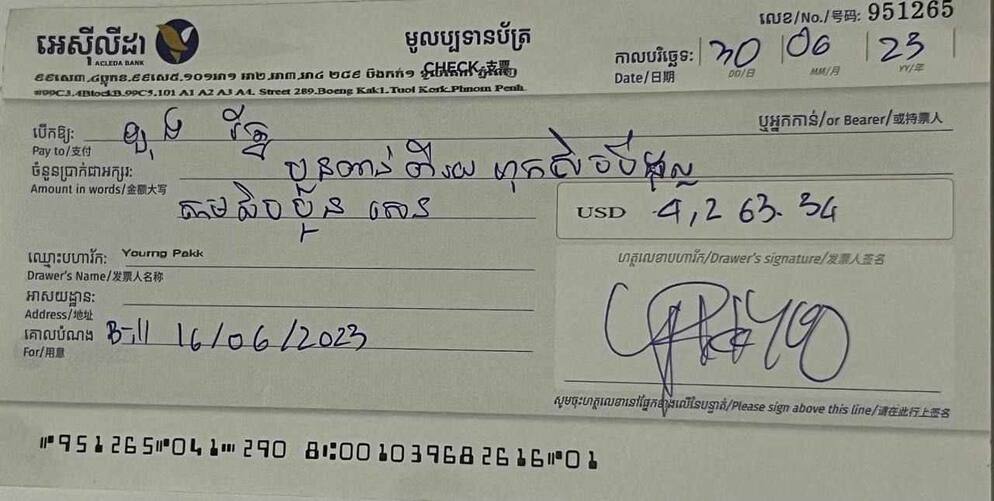 អេស៊ីលីដា
ACLEDA BANK
មូលប្បទានប័ត្រ
CHECK/支票
លេខ/No./号码: 951265
កាលបរិច្ឆេទ: 30 06 23
Date/日期 DD/日 MM/月 YY/年
#99C3,4BlockB,99C5,101 A1 A2 A3 A4, Street 289,Boeng Kak1,Tuol Kork,Phnom Penh
បើកឱ្យ: ឡុង រ័ត្ន ឬអ្នកកាន់/or Bearer/或持票人
Pay to/支付
ចំនួនប្រាក់ជាអក្សរ: បួនពាន់ ពីររយ ហុកសិបបីដុល្លា
Amount in words/金额大写
សាមសិបបួន សេន
USD 4,263.34
ឈ្មោះបហារ័ក: Yourng Pakk
Drawer's Name/发票人名称
ហត្ថលេខាបហារ័ក/Drawer's signature/发票人签名
អាសយដ្ឋាន:
Address/地址
គោលបំណង Bill 16/06/2023
For/用意
សូមចុះហត្ថលេខានៅផ្នែកខាងលើនៃបន្ទាត់/Please sign above this line/请在此行上签名
⑈951265⑈041⑉290 8⑆001039682616⑈01